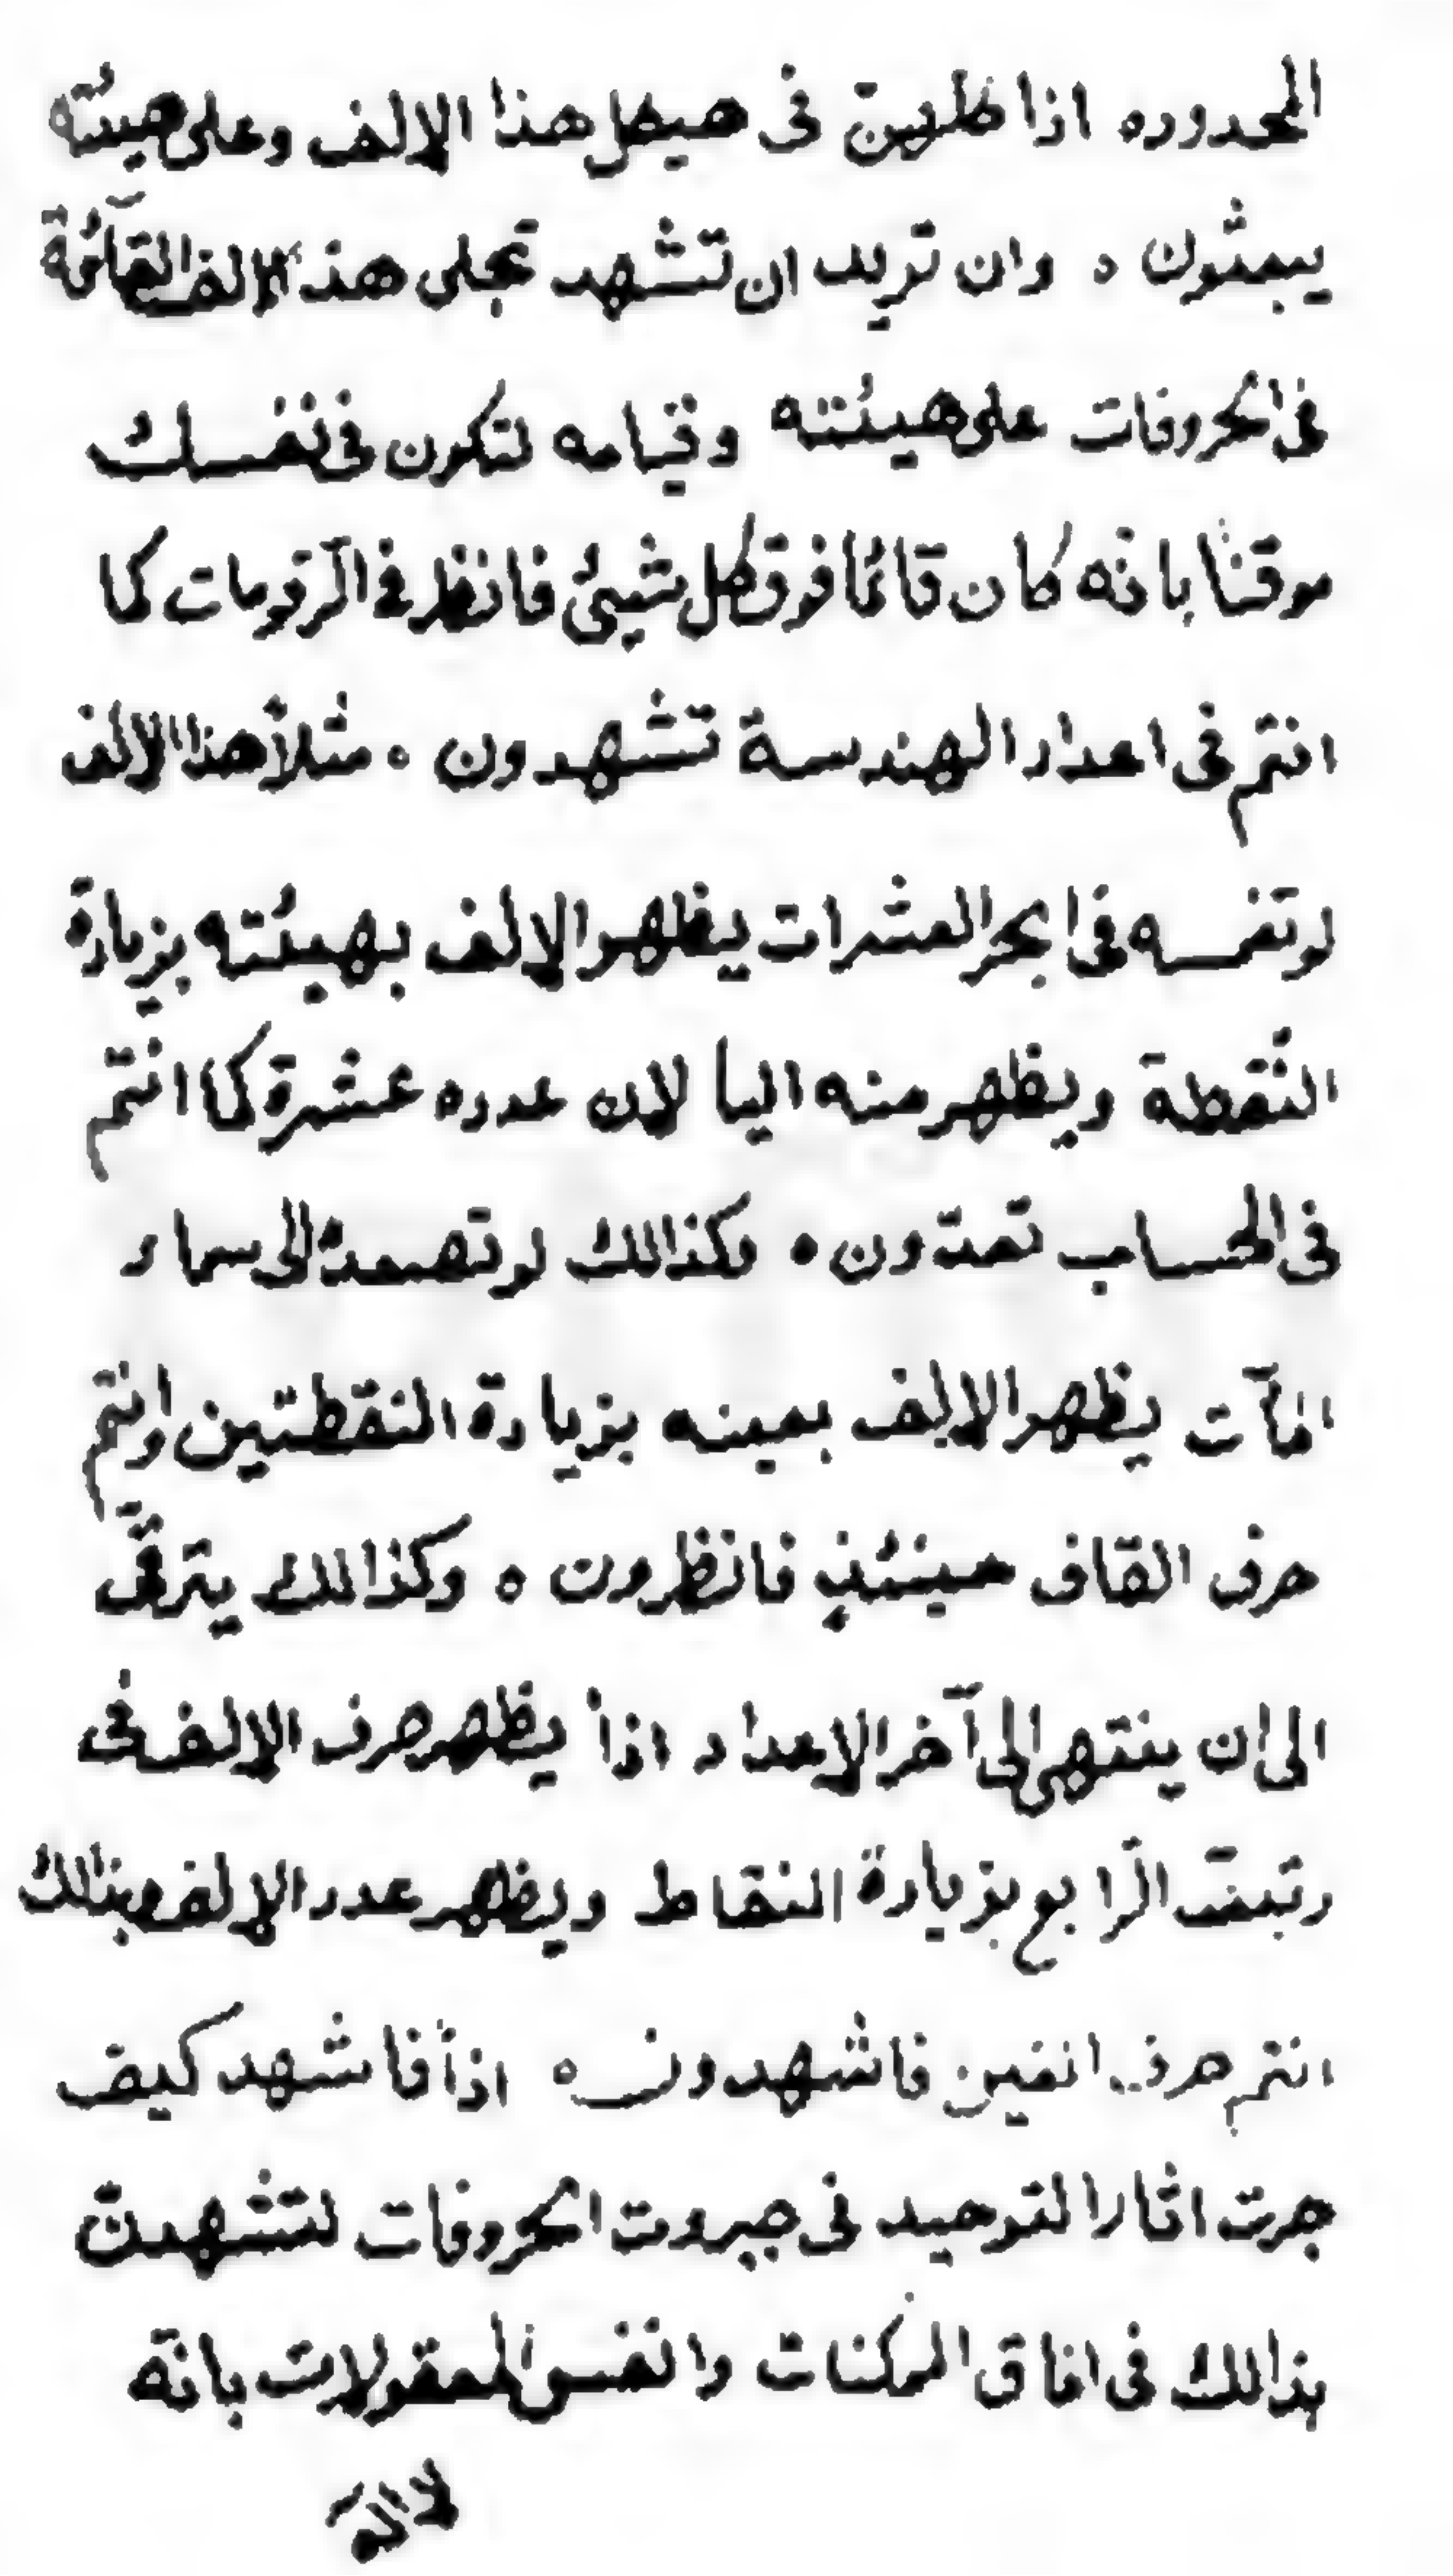 المحدوده اذا ظهرن فى هيكل هذا الالف وعلى هيئته
يبعثون ه وان تريد ان تشهد تجلى هذ الالف القآئمة
فى الحروفات على هيئته وقيامه لتكون فى نفسك
موقنا بانه كان قائما فوق كل شيئ فانظر فى الرقومات كما
انتم فى اعداد الهندسة تشهدون ه مثلاً هذا الالف
لو تغمسه فى ابحر العشرات يظهر الالف بهيئته بزيادة
النقطة ويظهر منه اليا لان عدده عشرة كما انتم
فى الحساب تعدّون ه وكذالك لو تصعده الى سماء
المآت يظهر الالف بعينه بزيادة النقطتين وانتم
حرف القاف حينئذٍ فانظرون ه وكذالك يترقّى
الى ان ينتهى الى آخر الاعداد اذاً يظهر حرف الالف فى
رتبة الرّابع بزيادة النقاط ويظهر عدد الالف وبذلك
انتم حرف الغين فاشهدون ه اذاً فاشهد كيف
جرت اثار التوحيد فى جبروت الحروفات لتشهدنّ
بذالك فى افاق الممكنات وانفس المعقولات بانّه
لا اله